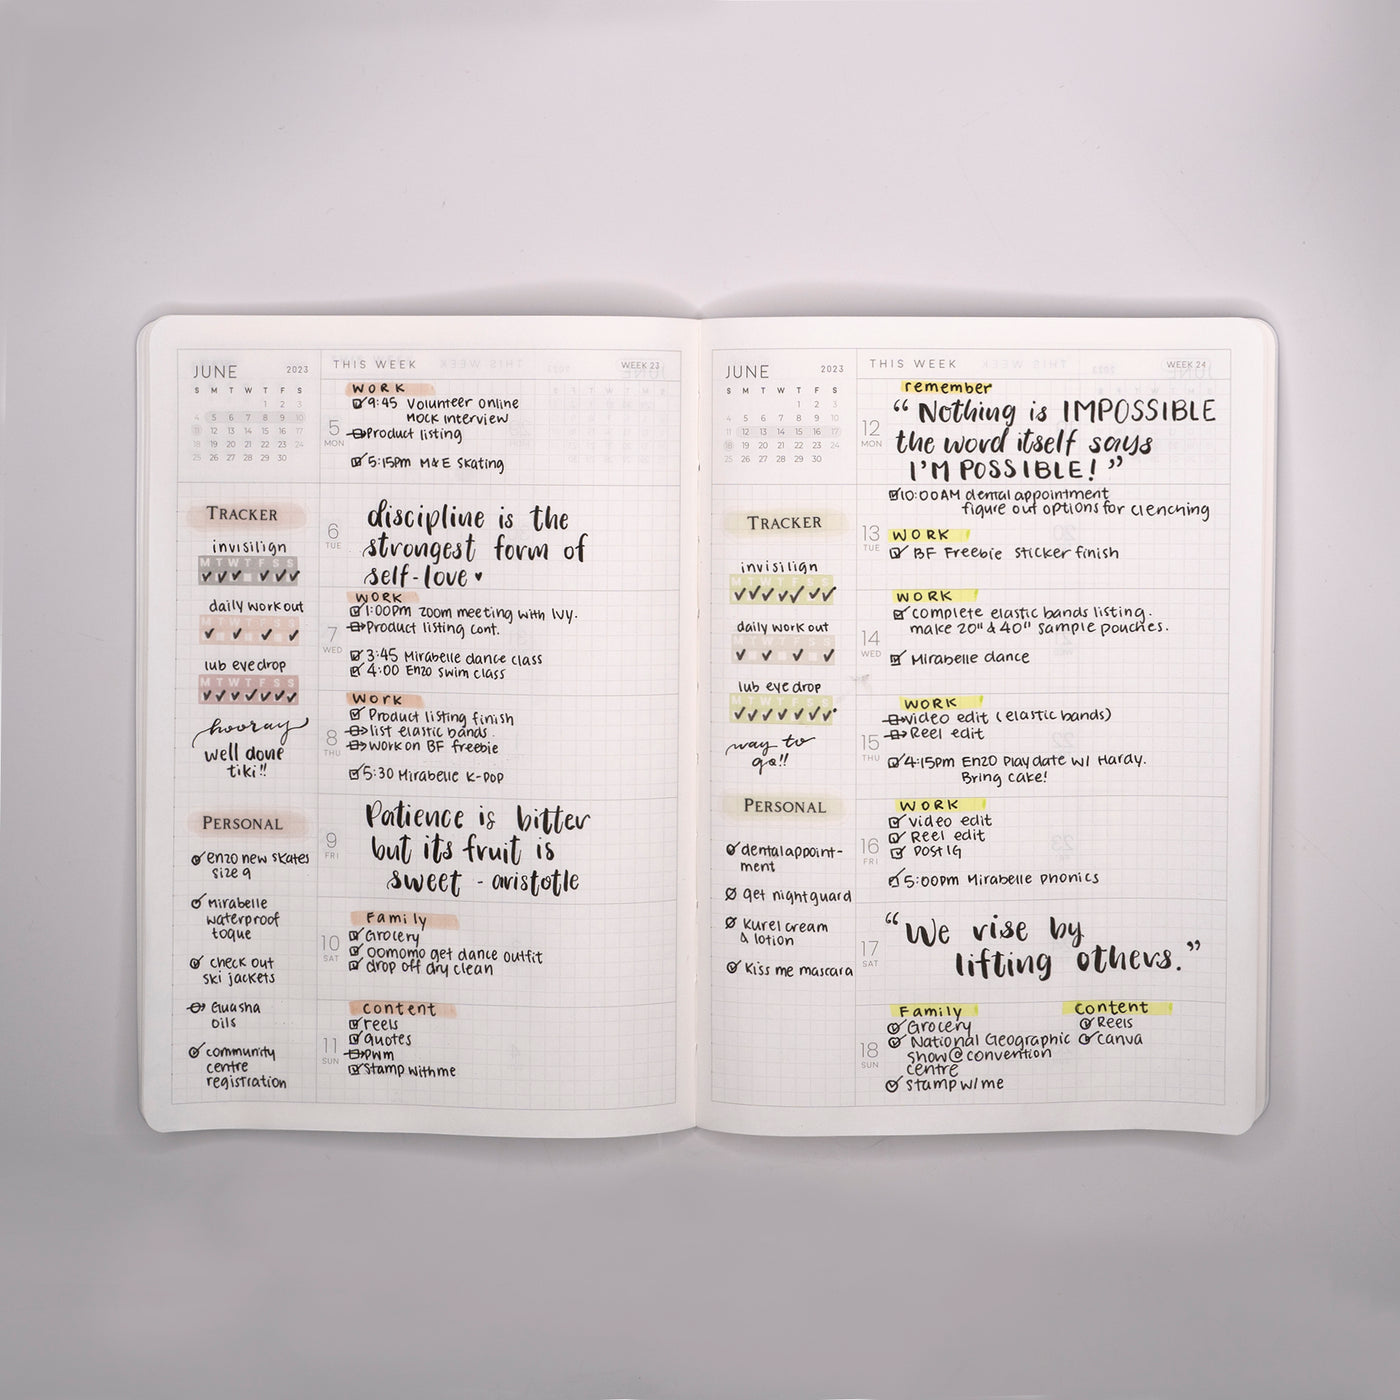 JUNE 2023
S M T W T F S
1 2 3
4 5 6 7 8 9 10
11 12 13 14 15 16 17
18 19 20 21 22 23 24
25 26 27 28 29 30
TRACKER
invisilign
M T W T F S S
daily workout
M T W T F S S
lub eyedrop
M T W T F S S
hooray
well done
tiki!!
PERSONAL
enzo new skates
size 9
Mirabelle
waterproof
toque
check out
ski jackets
Guasha
oils
community
centre
registration
THIS WEEK WEEK 23
WORK
9:45 Volunteer online
mock interview
5 MON
Product listing
5:15pm M&E Skating
6 TUE
discipline is the
strongest form of
self-love
WORK
1:00pm zoom meeting with Ivy.
Product listing cont.
7 WED
3:45 Mirabelle dance class
4:00 Enzo swim class
Work
Product listing finish
list elastic bands.
8 THU
work on BF freebie
5:30 Mirabelle K-pop
9 FRI
Patience is bitter
but its fruit is
sweet - aristotle
Family
Grocery
10 SAT
oomomo get dance outfit
drop off dry clean
content
reels
quotes
11 SUN
PWM
Stamp with me
JUNE 2023
S M T W T F S
1 2 3
4 5 6 7 8 9 10
11 12 13 14 15 16 17
18 19 20 21 22 23 24
25 26 27 28 29 30
TRACKER
invisilign
M T W T F S S
daily workout
M T W T F S S
lub eyedrop
M T W T F S S
way to
go!!
PERSONAL
dental appoint-
ment
get nightguard
Kurel cream
& lotion
Kiss me mascara
THIS WEEK WEEK 24
remember
12 MON
"Nothing is IMPOSSIBLE
the word itself says
I'M POSSIBLE!"
10:00AM dental appointment
figure out options for clenching
13 TUE
WORK
BF Freebie sticker finish
WORK
complete elastic bands listing.
make 20" & 40" sample pouches.
14 WED
Mirabelle dance
WORK
video edit (elastic bands)
Reel edit
15 THU
4:15pm Enzo Playdate w/ Hardy.
Bring cake!
WORK
video edit
Reel edit
16 FRI
POST IG
5:00pm Mirabelle phonics
17 SAT
"We rise by
lifting others."
Family Content
Grocery Reels
National Geographic Canva
18 SUN
show@convention
centre
stamp w/me